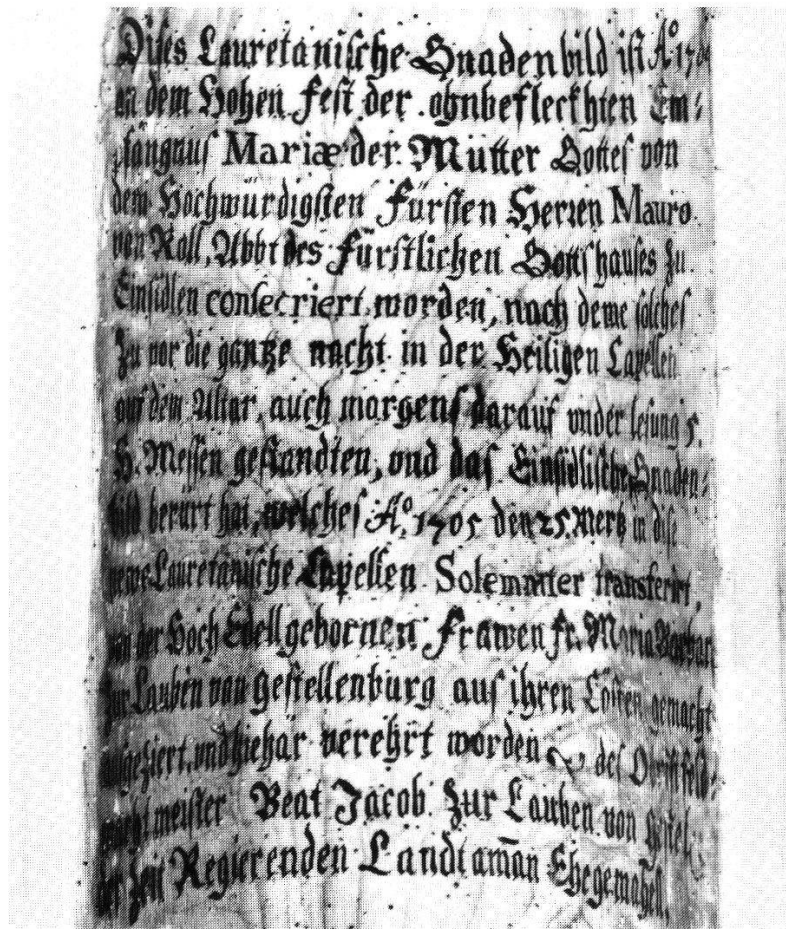 Dises Lauretanische Gnadenbild ist Aº 1704
an dem Hohen Fest der ohnbefleckhten Em⸗
pfängnus Mariæ der Mutter Gottes von
dem Hochwürdigsten Fürsten Herren Mauro
von Roll, Abbt des Fürstlichen Gottshauses zu
Einsidlen consecriert worden, nach deme solches
Zu vor die gantze nacht in der Heiligen Capellen
auf dem Altar, auch morgens darauf vnder lesung 5.
H. Messen gestandten, vnd das Einsidlische Gnaden⸗
bild berürt hat, welches Aº 1705 den 25. Mertz in dise
newe Lauretanische Capellen Solemniter transferirt,
von der Hoch Edell gebornen Frawen Fr. Maria Barbara
Zur Lauben von Gestellenburg aus ihren Costen gemacht
ausgeziert, vnd hiehär verehrt worden des Obrist feld⸗
wachtmeister Beat Jacob Zur Lauben von
der Zeit Regierenden Landtam̄an Ehegemahel.